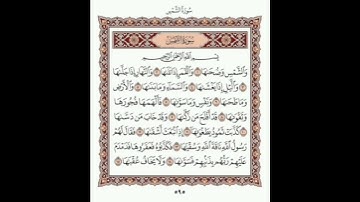 سورة الشمس
سورة الشمس
بسم الله الرحمن الرحيم
والشمس وضحىها ١ والقمر إذا تلىها ٢ والنهار إذا جلىها
٣ واليل إذا يغشىها ٤ والسماء وما بنىها ٥ والأرض
وما طحىها ٦ ونفس وما سوىها ٧ فألهمها فجورها
وتقوىها ٨ قد أفلح من زكىها ٩ وقد خاب من دسىها
١٠ كذبت ثمود بطغوىها ١١ إذ انبعث أشقىها ١٢ فقال لهم
رسول الله ناقة الله وسقيىها ١٣ فكذبوه فعقروها فدمدم
عليهم ربهم بذنبهم فسوىها ١٤ ولا يخاف عقبىها ١٥
٥٩٥